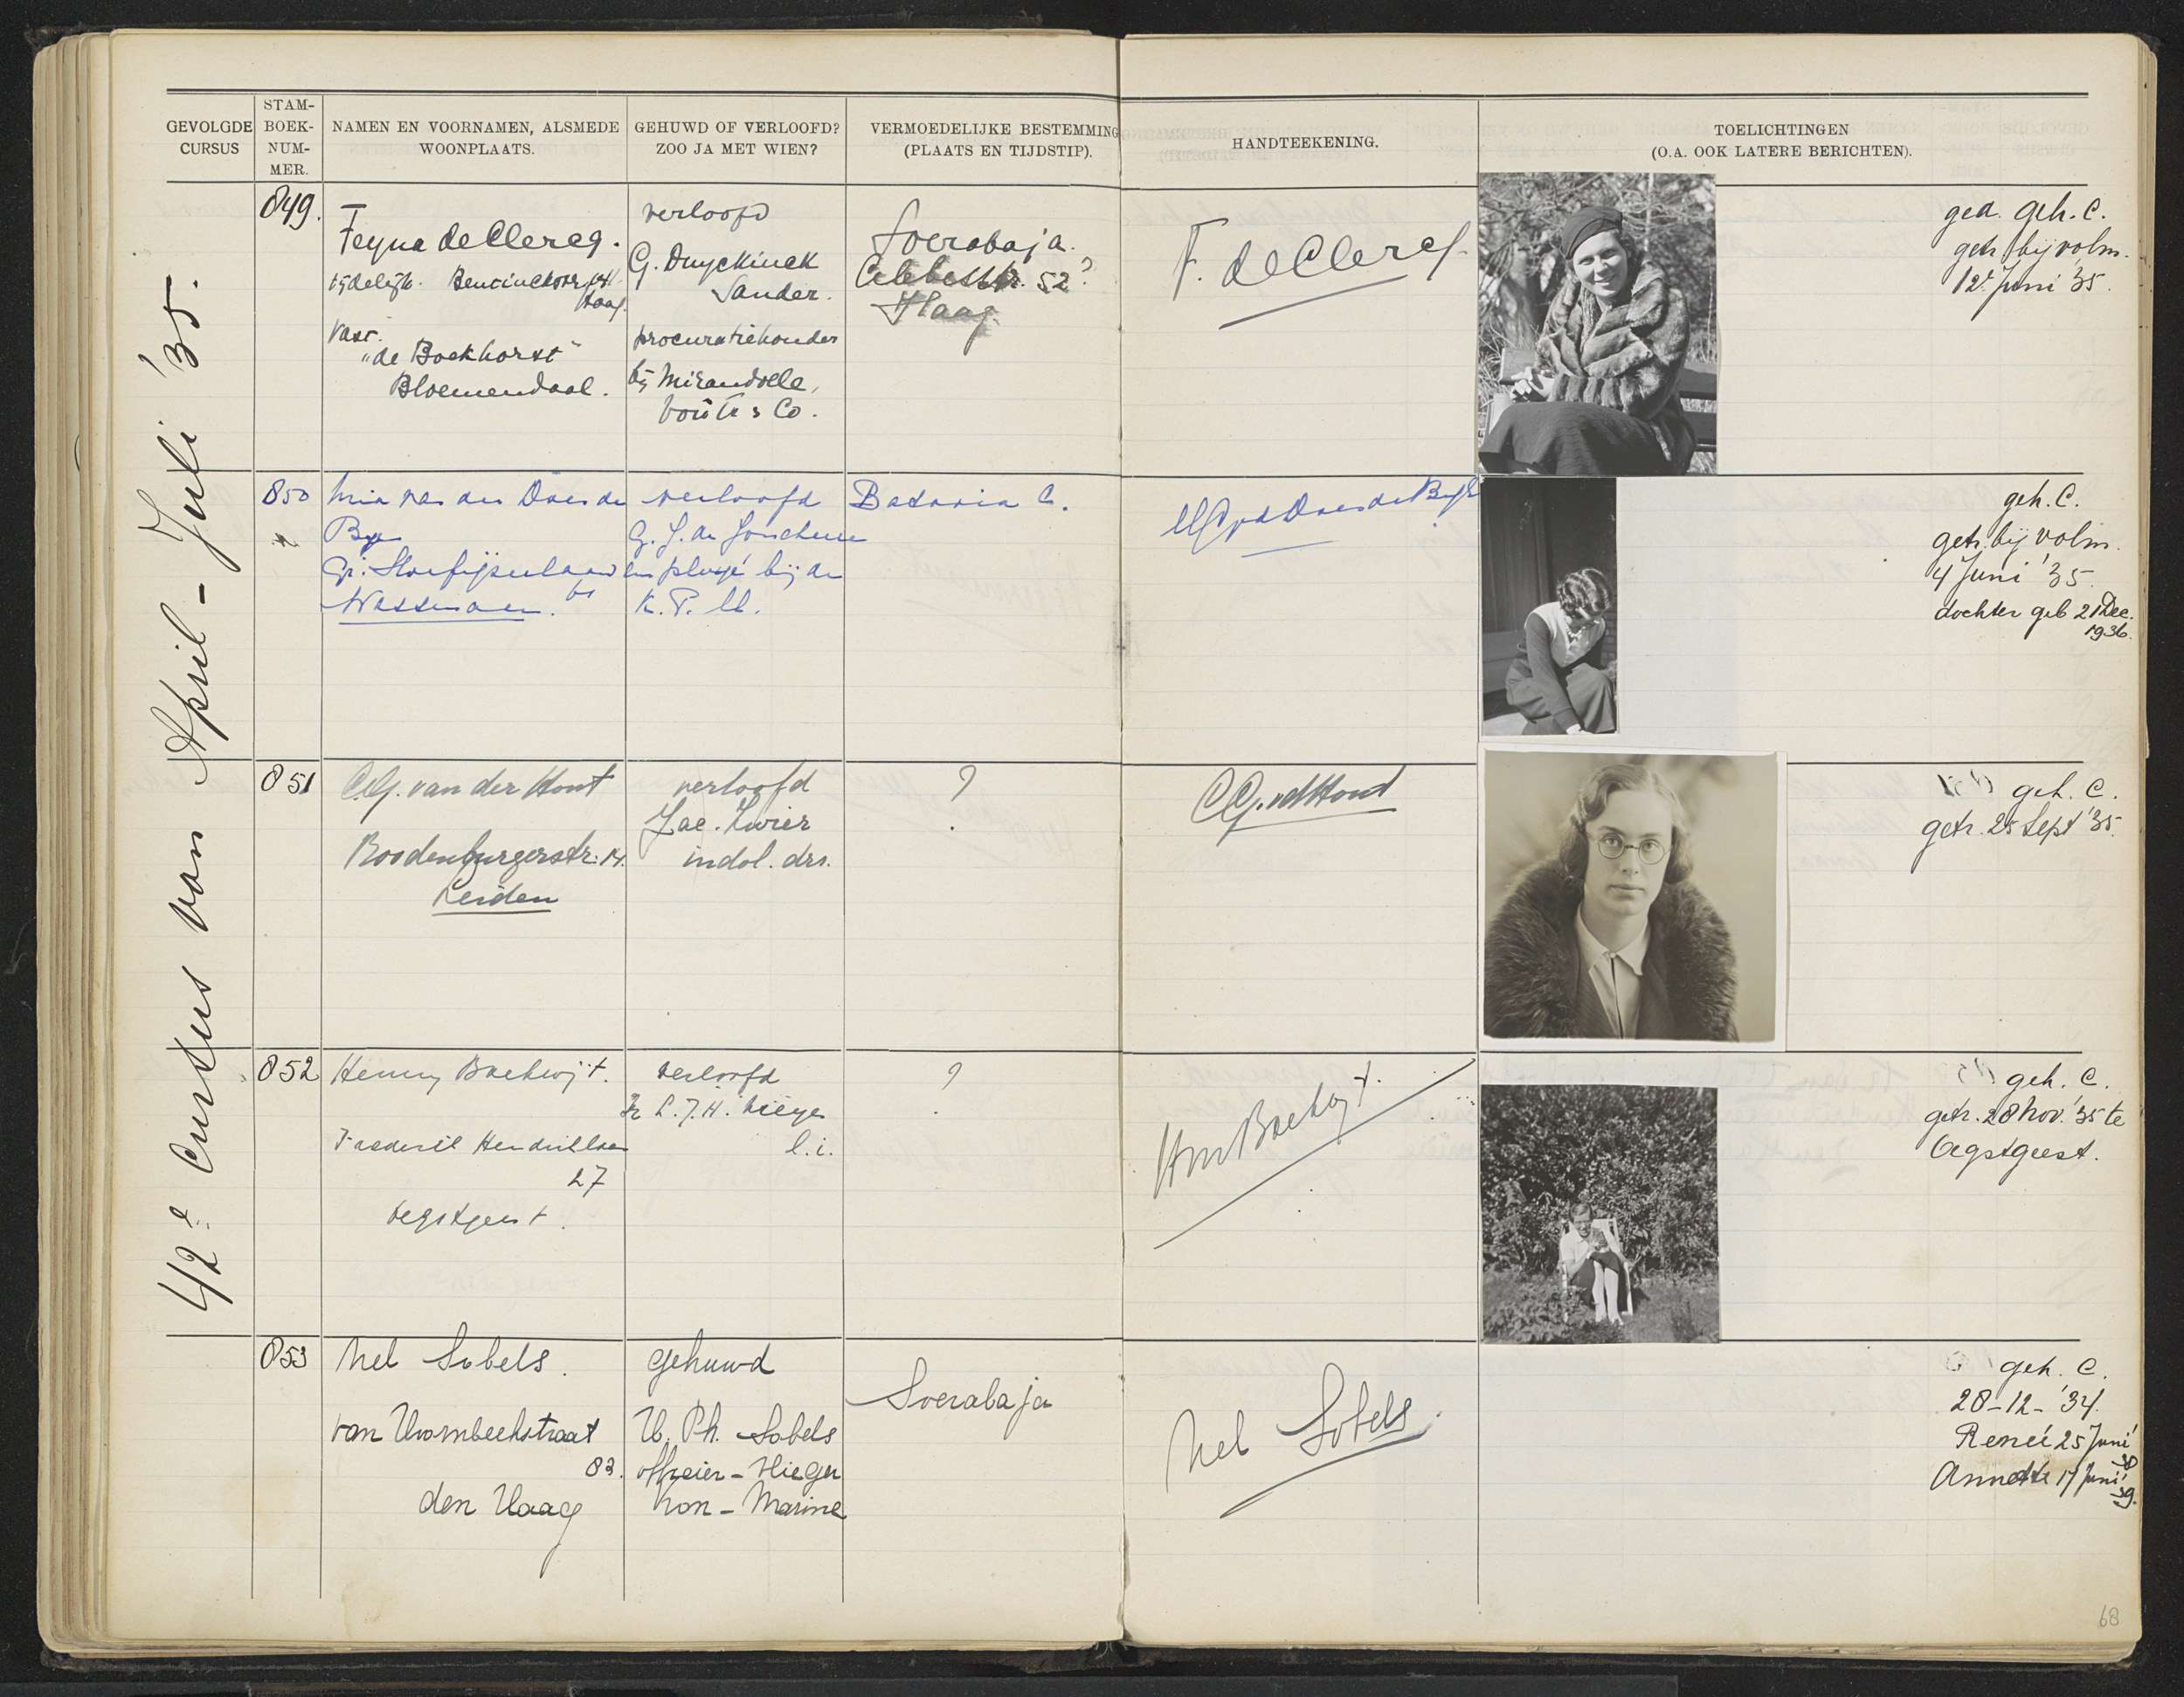 GEVOLGDE
CURSUS
STAM-
BOEK-
NUM-
MER.
NAMEN EN VOORNAMEN, ALSMEDE
WOONPLAATS.
GEHUWD OF VERLOOFD?
ZOO JA MET WIEN?
VERMOEDELIJKE BESTEMMING
(PLAATS EN TIJDSTIP).
HANDTEEKENING.
TOELICHTINGEN
(O.A. OOK LATERE BERICHTEN).
42e Cursus van April - Juli '35.
849.
Feyna de Clercq.
tijdelijk.
Haag.
Vast.
"de Boekhorst"
Bloemendaal.
verloofd
G. Duyckinck
Sander.
procuratiehouder
bij Mirandolle,
Voûte & Co.
Soerabaja.
Celebesstr. 52?
Haag.
F. de Clercq.
ged. geh. C.
getr. bij volm.
12 Juni '35.
850
Mia van der Does de
Bye
Wassenaar.
verloofd
employé bij de
K.P.M.
Batavia C.
geh. C.
getr. bij volm.
4 Juni '35.
dochter geb 21 Dec.
1936.
851
C.G. van der Hout
Roodenburgerstr. 14.
Leiden
verloofd
Jac. Zwier
indol. drs.
?
CG. vd Hout
geh. C.
getr. 25 Sept '35.
852
Henny Boekwijt.
Frederik Hendriklaan
27
Oegstgeest.
verloofd
l.i.
?
geh. C.
getr. 28 Nov. '35 te
Oegstgeest.
853
Nel Sobels.
van Hoornbeekstraat
den Haag
gehuwd
H. Ph. Sobels
officier-vlieger
Kon-Marine
Soerabaja
Nel Sobels.
geh. C.
28-12-'34.
Reneé 25 Juni
Annette 17 Juni
'39.
68